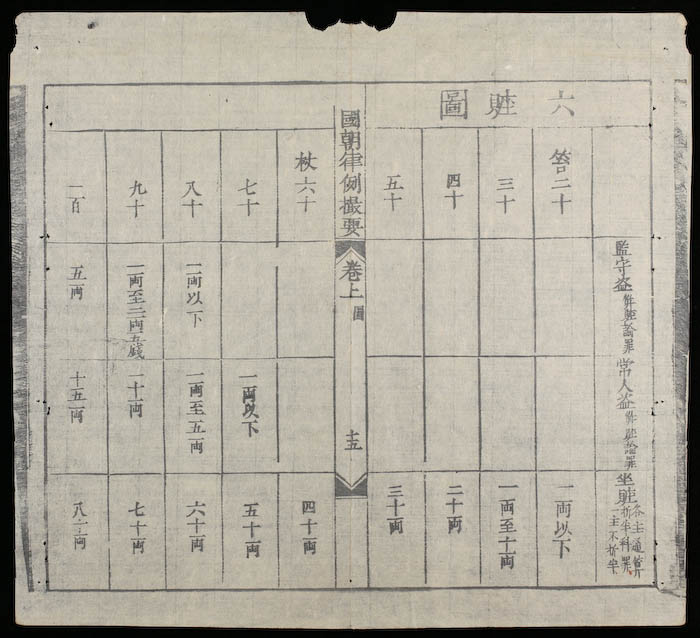 六贓圖
監守盜 併贓論罪
常人盜 併贓論罪
坐贓 各主通算折半科罪一主不折半
笞二十
一兩以下
三十
一兩至十兩
四十
二十兩
五十
三十兩
國朝律例撮要 卷上 圖 十五
杖六十
四十兩
七十
一兩以下
五十兩
八十
一兩以下
一兩至五兩
六十兩
九十
一兩至二兩五錢
一十兩
七十兩
一百
五兩
十五兩
八十兩